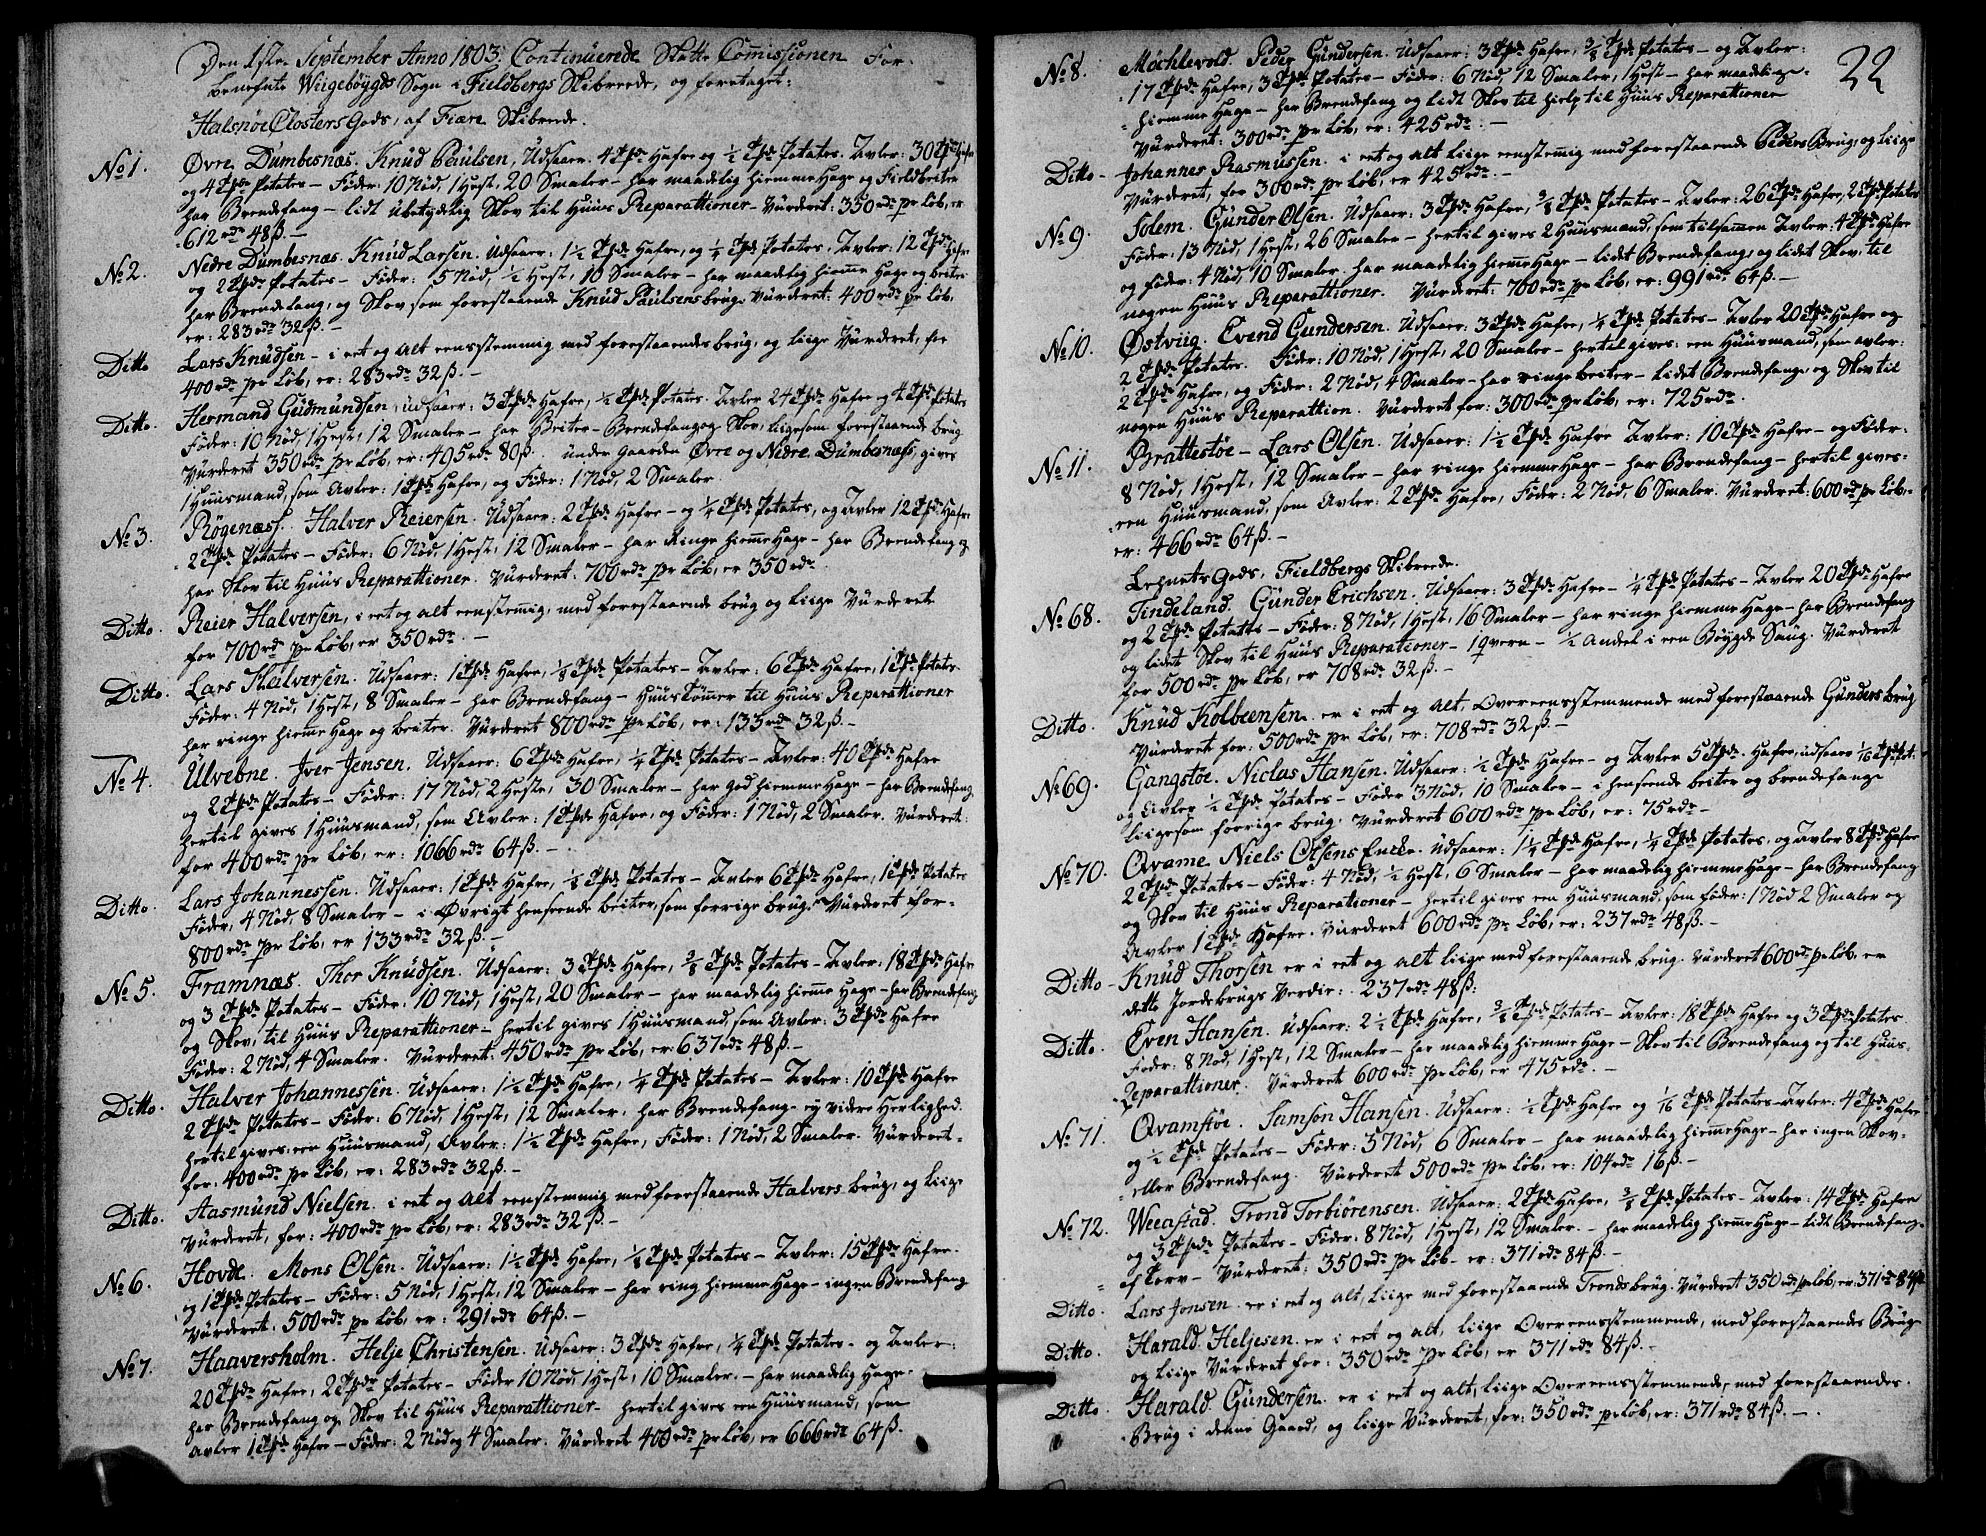 Den 1ste September Anno 1803. Continuerede Skatte Comissionen For-
benefnte Wiigebøygds Sogn i Fieldbergs Skibreede, og foretaget:
Halsnøe Closters Gods, af Fiære Skibrede.
No 1. Øvre Dümbesnæs. Knüd Paülsen, Üdsaaer: 4 Tpdr Hafre og ½ Tpde Potates. Avler: 30 Tpdr Hafre
og 4 Tpdr Potates - Føder: 10 Nød, 1 Hest, 20 Smaler - har maadelig hiemme Hage og Fieldbeiter
har Brendefang - lidt übetydelig Skov til Hüüs Reparattioner - Vürderet: 350 rdr pr Løb, er
612 rdr 48 ß. -
No 2. Nedre Dümbesnæs. Knüd Larsen. Üdsaaer: 1½ Tpde Hafre, og ¼ Tpde Potates, Avler: 12 Tpdr Hafre
og 2 Tpdr Potates - Føder: 5 Nød, ½ Hest, 10 Smaler - har maadelig hieme Hage og beiter
har Brendefang, og Skov som forestaaende Knüd Paülsens brüg. Vürderet: 400 rdr pr Løb,
er: 283 rdr 32 ß. -
Ditto Lars Knüdsen - i eet og alt eensstemmig med forestaaendes brüg, og liige Vürderet, for
400 rdr pr Løb, er: 283 rdr 32 ß. -
Ditto. Hermand Güdmündsen, üdsaaer: 3 Tpdr Hafre, ½ Tpde Potates. Avler 24 Tpdr Hafre og 4 Tpdr Potates
Føder: 10 Nød, 1 Hest, 12 Smaler - har Beiter - Brendefang og Skov, liigesom forestaaende brüg
Vürderet 350 rdr pr Løb, er: 495 rdr 80 ß. ünder Gaarden Øvre og Nedre Dümbesnæss, gives
1 Hüüsmand, som Avler: 1 Tpde Hafre, og Føder: 1 Nød, 2 Smaler.
No 3. Røgenæss. Halver Reiersen. Üdsaaer: 2 Tpdr Hafre - og ¼ Tpde Potates, og Avler 12 Tpdr Hafre
2 Tpdr Potates - Føder: 6 Nød, 1 Hest, 12 Smaler - har Ringe hieme Hage - har Brendefang og
har Skov til Hüüs Reparattioner. Vürderet: 700 rdr pr Løb, er 350 rdr.
Ditto. Reier Halversen, i eet og alt eenstemig, med forestaaende brüg og liige Vürderet
for 700 rdr pr Løb, er 350 rdr. -
Ditto. Lars Halversen. Üdsaaer: 1 Tpde Hafre, ⅛ Tpde Potates - Avler: 6 Tpdr Hafre, 1 Tpde Potates.
Føder: 4 Nød, 1 Hest, 8 Smaler - har Brendefang - Hüüs tømer til Hüüs Reparattioner
har ringe hieme Hage og beiter. Vürderet 800 rdr pr Løb, er: 133 rdr 32 ß. -
No 4. Ülvebne. Iver Jensen. Üdsaaer: 6 Tpdr Hafre, ¼ Tpde Potates - Avler: 40 Tpdr Hafre
og 2 Tpdr Potates - Føder: 17 Nød, 2 Heste, 30 Smaler - har god hiemme Hage - har Brendefang
hertil gives 1 Hüüsmand, som Avler: 1 Tpde Hafre, og Føder: 1 Nød, 2 Smaler. Vürderet:
for 400 rdr pr Løb, er: 1066 rdr 64 ß. -
Ditto. Lars Johannessen. Üdsaaer: 1 Tpde Hafre, ⅛ Tpde Potates - Avler 6 Tpdr Hafre, 1 Tpde Potates
Føder, 4 Nød, 8 Smaler - i Øvrigt henseende beiter, som forrige brüg. Vürderet for -
800 rdr pr Løb, er 133 rdr 32 ß. -
No 5. Framnæs. Thor Knüdsen. Üdsaaer: 3 Tpdr Hafre, ⅜ Tpde Potates - Avler: 18 Tpdr Hafre
og 3 Tpdr Potates - Føder: 10 Nød, 1 Hest, 20 Smaler - har maadelig hieme Hage - har Brendefang
og Skov, til Hüüs Reparattioner - hertil gives 1 Hüüsmand, som Avler: 3 Tpdr Hafre
Føder: 2 Nød, 4 Smaler. Vürderet: 450 rdr pr Løb, er: 637 rdr 48 ß. -
Ditto. Halver Johannessen. Üdsaaer: 1½ Tpde Hafre, ¼ Tpde Potates - Avler: 10 Tpdr Hafre
2 Tpdr Potates - Føder: 6 Nød, 1 Hest, 12 Smaler. har Brendefang - ey videre Herlighed.
hertil gives: een Hüüsmand, Avler: 1½ Tpde Hafre, Føder: 1 Nød, 2 Smaler. Vürderet -
for: 400 rdr pr Løb, er: 283 rdr 32 ß. -
Ditto. Aasmünd Nielsen. i eet og alt eenstemmig med forestaaende Halvers brüg, og liige
Vürderet, for: 400 rdr pr Løb, er: 283 rdr 32 ß. -
No 6. Hovde. Mons Olsen. Üdsaaer: 1½ Tpde Hafre, ⅛ Tpde Potates - Avler: 15 Tpdr Hafre.
og 1 Tpde Potates - Føder: 5 Nød, 1 Hest, 12 Smaler - har ring hiemme Hage - ingen Brendefang
Vürderet. 500 rdr pr Løb, er: 291 rdr 64 ß. -
No 7. Haaversholm. Helje Christensen. Üdsaaer: 3 Tpdr Hafre, ¼ Tpde Potates - og Avler:
20 Tpdr Hafre, 2 Tpdr Potates - Føder 10 Nød, 1 Hest, 10 Smaler. - har maadelig Hage.
har Brendefang og Skov til Hüüs Reparattioner - hertil gives een Hüüsmand, som
avler 1 Tpde Hafre - Føder: 2 Nød og 4 Smaler. Vürderet 400 rdr pr Løb, er 666 rdr 64 ß.
22
No 8. Möchlevold. Peder Gündersen. Üdsaaer: 3 Tpdr Hafre, ⅜ Tpde Potates - og Avler:
17 Tpdr Hafre, 3 Tpdr Potates - Føder: 6 Nød, 12 Smaler, 1 Hest - har maadelige
hiemme Hage - har Brendefang og lidt Skov til hielp til Hüüs Reparattioner
Vürderet: 300 rdr pr Løb, er: 425 rdr: -
Ditto - Johannes Rasmüssen. i eet og alt liige eenstemig med forestaaende Peders Brüg, og liige
Vürderet, for 300 rdr pr Løb, er 425 rdr: -
No 9. Solem. Günder Olsen. Üdsaaer: 3 Tpdr Hafre, ⅜ Tpde Potates - Avler: 26 Tpdr Hafre, 2 Tpdr Potates
Føder: 13 Nød, 1 Hest, 26 Smaler - hertil gives 2 Hüüsmand, som tilsamen Avler: 4 Tpdr Hafre
og føder: 4 Nød, 10 Smaler. har maadelig hieme Hage - lidet Brendefang, og lidet Skov, til
nogen Hüüs Reparattioner. Vürderet: 700 rdr pr Løb, er: 991 rdr 64 ß. -
No 10. Østviig. Evend Gündersen. Üdsaaer: 3 Tpdr Hafre, ¼ Tpde Potates - Avler 20 Tpdr Hafre og
2 Tpdr Potates. Føder: 10 Nød, 1 Hest, 20 Smaler - hertil gives: een Hüüsmand, som avler:
2 Tpdr Hafre, og Føder: 2 Nød, 4 Smaler - har ringe beiter - lidet Brendefang, og Skov til
nogen Hüüs Reparattion. Vürderet for: 300 rdr pr Løb, er: 725 rdr.
No 11. Brattestøe - Lars Olsen. Üdsaaer: 1½ Tpde Hafre Avler: 10 Tpdr Hafre - og Føder:
8 Nød, 1 Hest, 12 Smaler - har ringe hiemme Hage - har Brendefang - hertil gives:
een Hüüsmand, som Avler: 2 Tpdr Hafre, Føder: 2 Nød, 6 Smaler. Vürderet: 600 rdr pr Løb,
er: 466 rdr 64 ß. -
Lehnets Gods, Fieldbergs Skibreede.
No 68. Tindeland. Günder Erichsen. Üdsaaer: 3 Tpdr Hafre - ¼ Tpde Potates - Avler 20 Tpdr Hafre
og 2 Tpdr Potates - Føder: 8 Nød, 1 Hest, 16 Smaler - har ringe hiemme Hage - har Brendefang
og lidet Skov til Hüüs Reparationer - 1 qvern - ½ Andel i een Bøygde Saüg. Vürderet
for 500 rdr pr Løb, er 708 rdr 32 ß. -
Ditto. Knüd Kolbeensen. er i eet og alt. Overeensstemmende med forestaaende Günders brüg
Vürderet for: 500 rdr pr Løb, er: 708 rdr 32 ß. -
No 69. Gangstøe. Niclas Hansen. Üdsaaer: ½ Tpde Hafre - og Avler 5 Tpdr Hafre, üdsaaer 1/16 Tpde Pot:
og Avler ½ Tpde Potates - Føder 3 Nød, 10 Smaler - i henseende beiter og brendefang
liigesom forrige brüg. Vürderet 600 rdr pr Løb, er: 75 rdr -
No 70. Qvame Niels Olsens Encke. Üdsaaer: 1¼ Tpde Hafre, ¼ Tpde Potates, og Avler 8 Tpdr Hafre
2 Tpdr Potates - Føder: 4 Nød, ½ Hest, 6 Smaler - har maadelig hiemme Hage - har Brendefang
og Skov til Hüüs Reparationer - hertil gives een Hüüsmand, som føder: 1 Nød 2 Smaler og
Avler 1 Tpde Hafre. Vürderet 600 rdr pr Løb, er: 237 rdr 48 ß. -
Ditto - Knüd Thorsen er i eet og alt liige med forestaaende brüg. Vürderet 600 rdr pr Løb. er
dette Jordebrügs Verdie: 237 rdr 48 ß:
Ditto. Even Hansen. Üdsaaer: 2½ Tpde Hafre, ⅜ Tpde Potates - Avler: 18 Tpdr Hafre og 3 Tpdr Potates
Føder: 8 Nød, 1 Hest, 12 Smaler - har maadelig hiemme Hage - Skov til Brendefang og til Hüüs.
Reparattioner. Vürderet 600 rdr pr Løb, er 475 rdr. -
No 71. Qvamstøe. Samson Hansen. Üdsaaer: ½ Tpde Hafre og 1/16 Tpde Potates - Avler: 4 Tpdr Hafre
og ½ Tpde Potates - Føder: 3 Nød, 6 Smaler - har maadelig hieme Hage - har ingen Skov -
eller Brendefang. Vürderet 500 rdr pr Løb, er: 104 rdr 16 ß. -
No 72. Weeastad. Trond Torbiørensen. Üdsaaer: 2 Tpdr Hafre, ⅜ Tpde Potates - Avler: 14 Tpdr Hafre
og 3 Tpdr Potates - Føder: 8 Nød, 1 Hest, 12 Smaler. - har maadelig hieme Hage - lidt Brendefang
af Torv - Vürderet: 350 rdr pr Løb - er: 371 rdr 84 ß. -
Ditto. Lars Jonsen. er i eet og alt, liige med forestaaende Tronds brüg. Vürderet 350 rdr pr Løb, er: 371 rdr 84 ß
Ditto. Harald Heljesen. er i eet og alt, liige Overeensstemmende, med forestaaendes Brüg
og liige Vürderet for: 350 rdr pr Løb, er 371 rdr 84 ß. -
Ditto. Harald Gündersen. er i eet og alt, liige Overeensstemmende, med forestaaendes.
Brüg i denne Gaard, og liige Vürderet, for: 350 rdr pr Løb, er: 371 rdr 84 ß. -